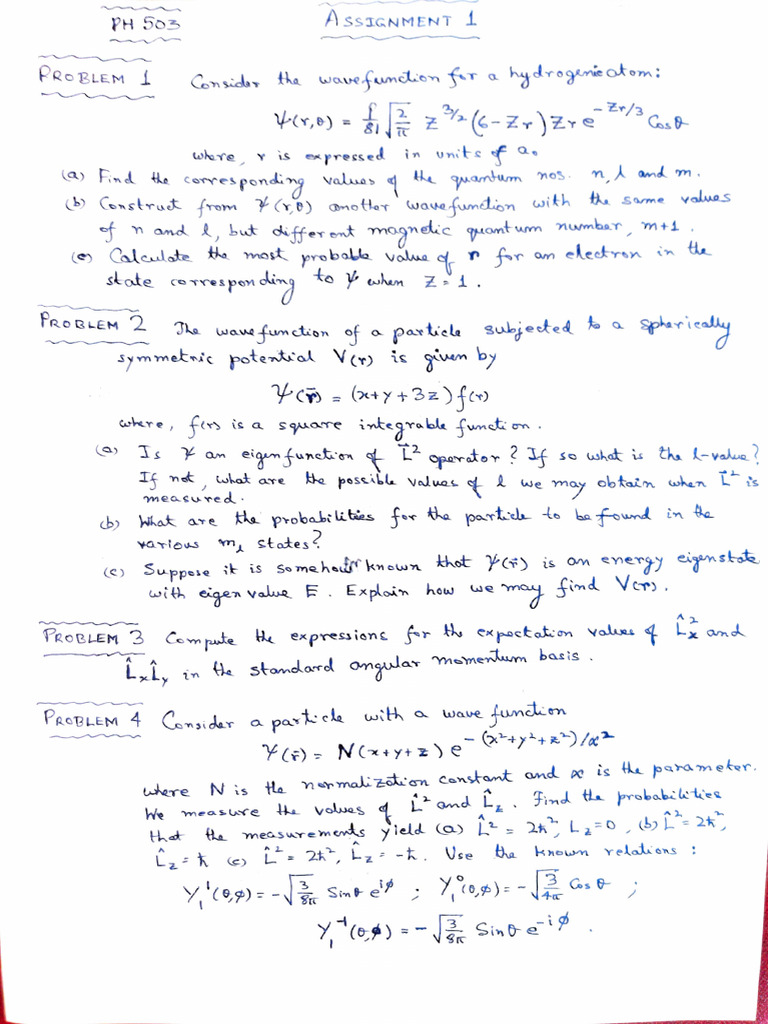 PH 503 ASSIGNMENT 1
PROBLEM 1 Consider the wavefunction for a hydrogenic atom:
ψ(r,θ) = 1/81 √(2/π) Z^{3/2} (6-Zr) Zr e^{-Zr/3} Cosθ
where, r is expressed in units of a₀
(a) Find the corresponding values of the quantum nos. n, l and m.
(b) Construct from ψ(r,θ) another wavefunction with the same values
of n and l, but different magnetic quantum number, m+1.
(c) Calculate the most probable value of r for an electron in the
state corresponding to ψ when Z = 1.
PROBLEM 2 The wavefunction of a particle subjected to a spherically
symmetric potential V(r) is given by
ψ(r̄) = (x+y+3z) f(r)
where, f(r) is a square integrable function.
(a) Is ψ an eigenfunction of L⃗² operator? If so what is the l-value?
If not, what are the possible values of l we may obtain when L⃗² is
measured.
(b) What are the probabilities for the particle to be found in the
various m_l states?
(c) Suppose it is somehow known that ψ(r̄) is an energy eigenstate
with eigen value E. Explain how we may find V(r).
PROBLEM 3 Compute the expressions for the expectation values of L̂x² and
L̂x L̂y in the standard angular momentum basis.
PROBLEM 4 Consider a particle with a wave function
ψ(r̄) = N(x+y+z) e^{-(x²+y²+z²)/α²}
where N is the normalization constant and α is the parameter.
We measure the values of L̂² and L̂z. Find the probabilities
that the measurements yield (a) L̂² = 2ħ², Lz=0, (b) L̂² = 2ħ²,
L̂z = ħ (c) L̂² = 2ħ², L̂z = -ħ. Use the known relations:
Y₁¹(θ,φ) = -√(3/8π) Sinθ e^{iφ} ; Y₁⁰(θ,φ) = -√(3/4π) Cosθ ;
Y₁⁻¹(θ,φ) = -√(3/8π) Sinθ e^{-iφ}.